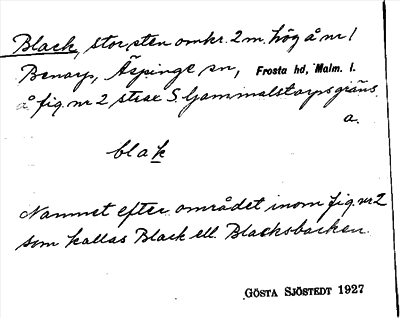 Black, stor sten omkr. 2 m. hög å nr 1
Benarp, Äspinge sn, Frosta hd, Malm. l.
å fig. nr 2 strax S. Gammalstorpsgräns.
a.
blak
Namnet efter området inom fig. nr 2
som kallas Black ell. Blacksbacken.
GÖSTA SJÖSTEDT 1927